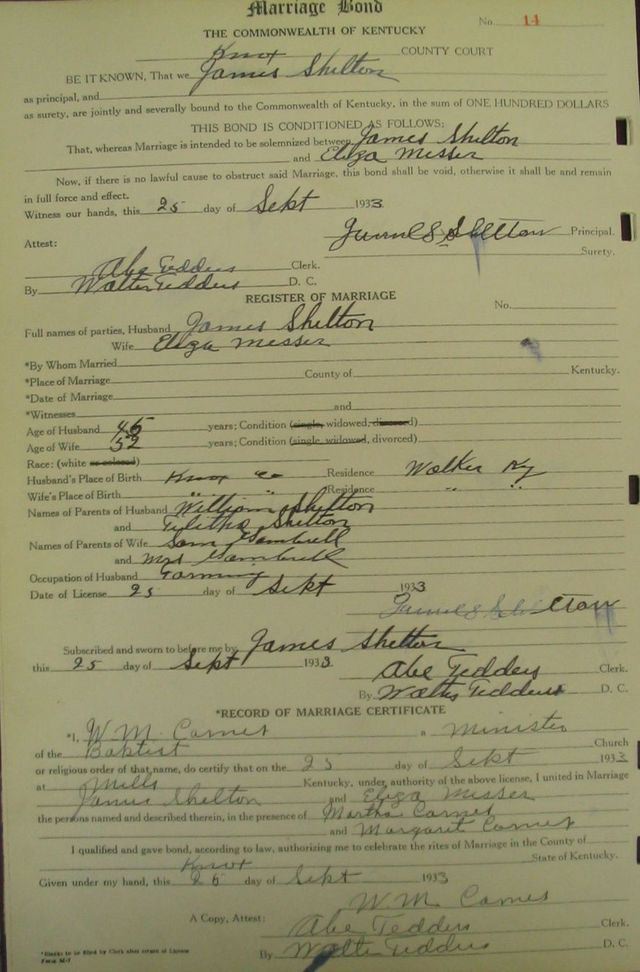 Marriage Bond
No. 14
THE COMMONWEALTH OF KENTUCKY
Knox COUNTY COURT
BE IT KNOWN, That we James Shelton
as principal, and
as surety, are jointly and severally bound to the Commonwealth of Kentucky, in the sum of ONE HUNDRED DOLLARS
THIS BOND IS CONDITIONED AS FOLLOWS:
That, whereas Marriage is intended to be solemnized between James Shelton
and Eliza Messer
Now, if there is no lawful cause to obstruct said Marriage, this bond shall be void, otherwise it shall be and remain
in full force and effect.
Witness our hands, this 25 day of Sept 1933
James Shelton Principal.
Attest: Surety.
Abe Tedders Clerk.
By Walter Tedders D. C.
REGISTER OF MARRIAGE
No.
Full names of parties, Husband James Shelton
Wife Eliza Messer
*By Whom Married
*Place of Marriage County of Kentucky.
*Date of Marriage
*Witnesses and
Age of Husband 45 years; Condition (single, widowed, divorced)
Age of Wife 52 years; Condition (single, widowed, divorced)
Race: (white or colored)
Husband's Place of Birth Knox Co Residence Walker Ky
Wife's Place of Birth " " Residence " "
Names of Parents of Husband William Shelton
and Shelton
Names of Parents of Wife Sam Gambrell
and Mrs Gambrell
Occupation of Husband Farming
Date of License 25 day of Sept 1933
James Shelton
Subscribed and sworn to before me by James Shelton
this 25 day of Sept 1933 Abe Tedders Clerk.
By Walter Tedders D. C.
*RECORD OF MARRIAGE CERTIFICATE
*I, W. M. a Minister
of the Baptist Church
or religious order of that name, do certify that on the 25 day of Sept 1933
at Mills Kentucky, under authority of the above license, I united in Marriage
James Shelton and Eliza Messer
the persons named and described therein, in the presence of Martha
and Margaret
I qualified and gave bond, according to law, authorizing me to celebrate the rites of Marriage in the County of
Knox State of Kentucky.
Given under my hand, this 26 day of Sept 1933
W. M.
A Copy, Attest: Abe Tedders Clerk.
By Walter Tedders D. C.
*Blanks to be filled by Clerk after return of License